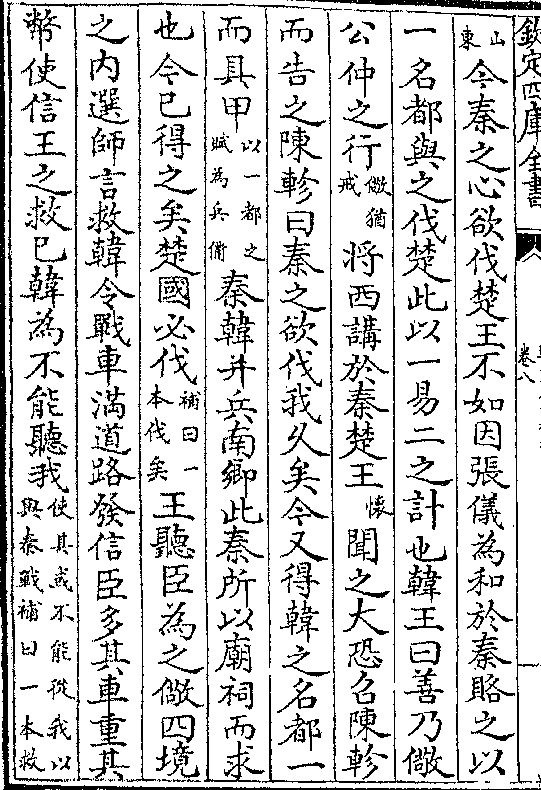 欽定四庫全書
卷八
山東今秦之心欲伐楚王不如因張儀為和於秦賂之以
一名都與之伐楚此以一易二之計也韓王曰善乃儆
公仲之行儆猶戒將西講於秦楚王懷聞之大恐召陳軫
而告之陳軫曰秦之欲伐我久矣今又得韓之名都一
而具甲以一都之賦為兵備秦韓并兵南鄉此秦所以廟祠而求
也今已得之矣楚國必伐補曰一本伐矣王聽臣為之儆四境
之内選師言救韓令戰車滿道路發信臣多其車重其
幣使信王之救已韓為不能聽我使其或不能從我以與秦戰補曰一本救